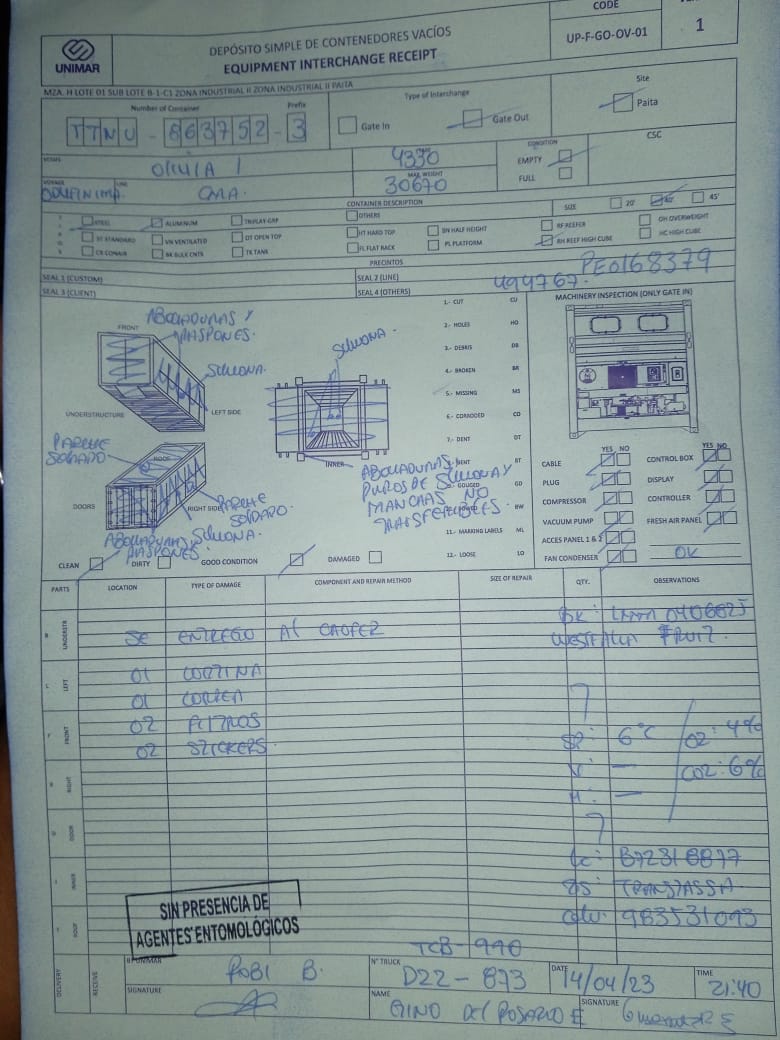 CODE
UP-F-GO-OV-01
1
UNIMAR
DEPÓSITO SIMPLE DE CONTENEDORES VACÍOS
EQUIPMENT INTERCHANGE RECEIPT
MZA. H LOTE 01 SUB LOTE B-1-C1 ZONA INDUSTRIAL II ZONA INDUSTRIAL II PAITA
Number of Container
Prefix
Type of Interchange
Site
TTNU - 863752 - 3
Gate In
Gate Out
Paita
OLIVIA I
4330
CONDITION
EMPTY
FULL
CSC
MAX. WEIGHT
30670
VOYAGE
LINE
CMA.
CONTAINER DESCRIPTION
SIZE
20'
40'
45'
STEEL
ALUMINUM
TRIPLAY-GRP
OTHERS
ST STANDARD
VN VENTILATED
OT OPEN TOP
HT HARD TOP
BN HALF HEIGHT
RF REEFER
OH OVERWEIGHT
CR CONAIR
BK BULK CNTS
TK TANK
FL FLAT RACK
PL PLATFORM
RH REEF HIGH CUBE
HC HIGH CUBE
PRECINTOS
SEAL 1 (CUSTOM)
SEAL 2 (LINE)
494767.
PE0168379
SEAL 3 (CLIENT)
SEAL 4 (OTHERS)
MACHINERY INSPECTION (ONLY GATE IN)
1.- CUT CU
2.- HOLES HO
3.- DEBRIS DB
4.- BROKEN BR
5.- MISSING MS
6.- CORRODED CO
7.- DENT DT
BENT BT
GOUGED GD
BW
11.- MARKING LABELS ML
12.- LOOSE LO
ABOLLADURAS Y
RASPONES.
FRONT
SILICONA.
SILICONA.
UNDERSTRUCTURE
LEFT SIDE
INNER
PARCHE
SOLDADO
ROOF
DOORS
RIGHT SIDE
PARCHE
SOLDADO.
SILICONA.
ABOLLADURAS Y
RASPONES.
ABOLLADURAS,
PUNTOS DE SILICONA Y
MANCHAS NO
TRANSFERIBLES.
YES NO
YES NO
CABLE
CONTROL BOX
PLUG
DISPLAY
COMPRESSOR
CONTROLLER
VACUUM PUMP
FRESH AIR PANEL
ACCES PANEL 1 & 2
FAN CONDENSER
OK
CLEAN
DIRTY
GOOD CONDITION
DAMAGED
PARTS
LOCATION
TYPE OF DAMAGE
COMPONENT AND REPAIR METHOD
SIZE OF REPAIR
QTY.
OBSERVATIONS
UNDERSTR
BK: LMM0406625
SE ENTREGO AL CHOFER
WESTFALIA FRUIT.
LEFT
01 CORTINA
01 CORREA
FRONT
02 FILTROS
SP: 6°C
O2: 4%
02 STICKERS.
RIGHT
V: —
CO2: 6%
H: —
DOOR
INNER
LC: B72318877
TRANSTASSA.
ROOF
983531093
SIN PRESENCIA DE
AGENTES ENTOMOLÓGICOS
TCB-990
DELIVERY
RECEIVE
UNIMAR
ROBI B.
SIGNATURE
N° TRUCK
D22-873
DATE
14/04/23
TIME
21:40
NAME
GINO DEL ROSARIO E
SIGNATURE